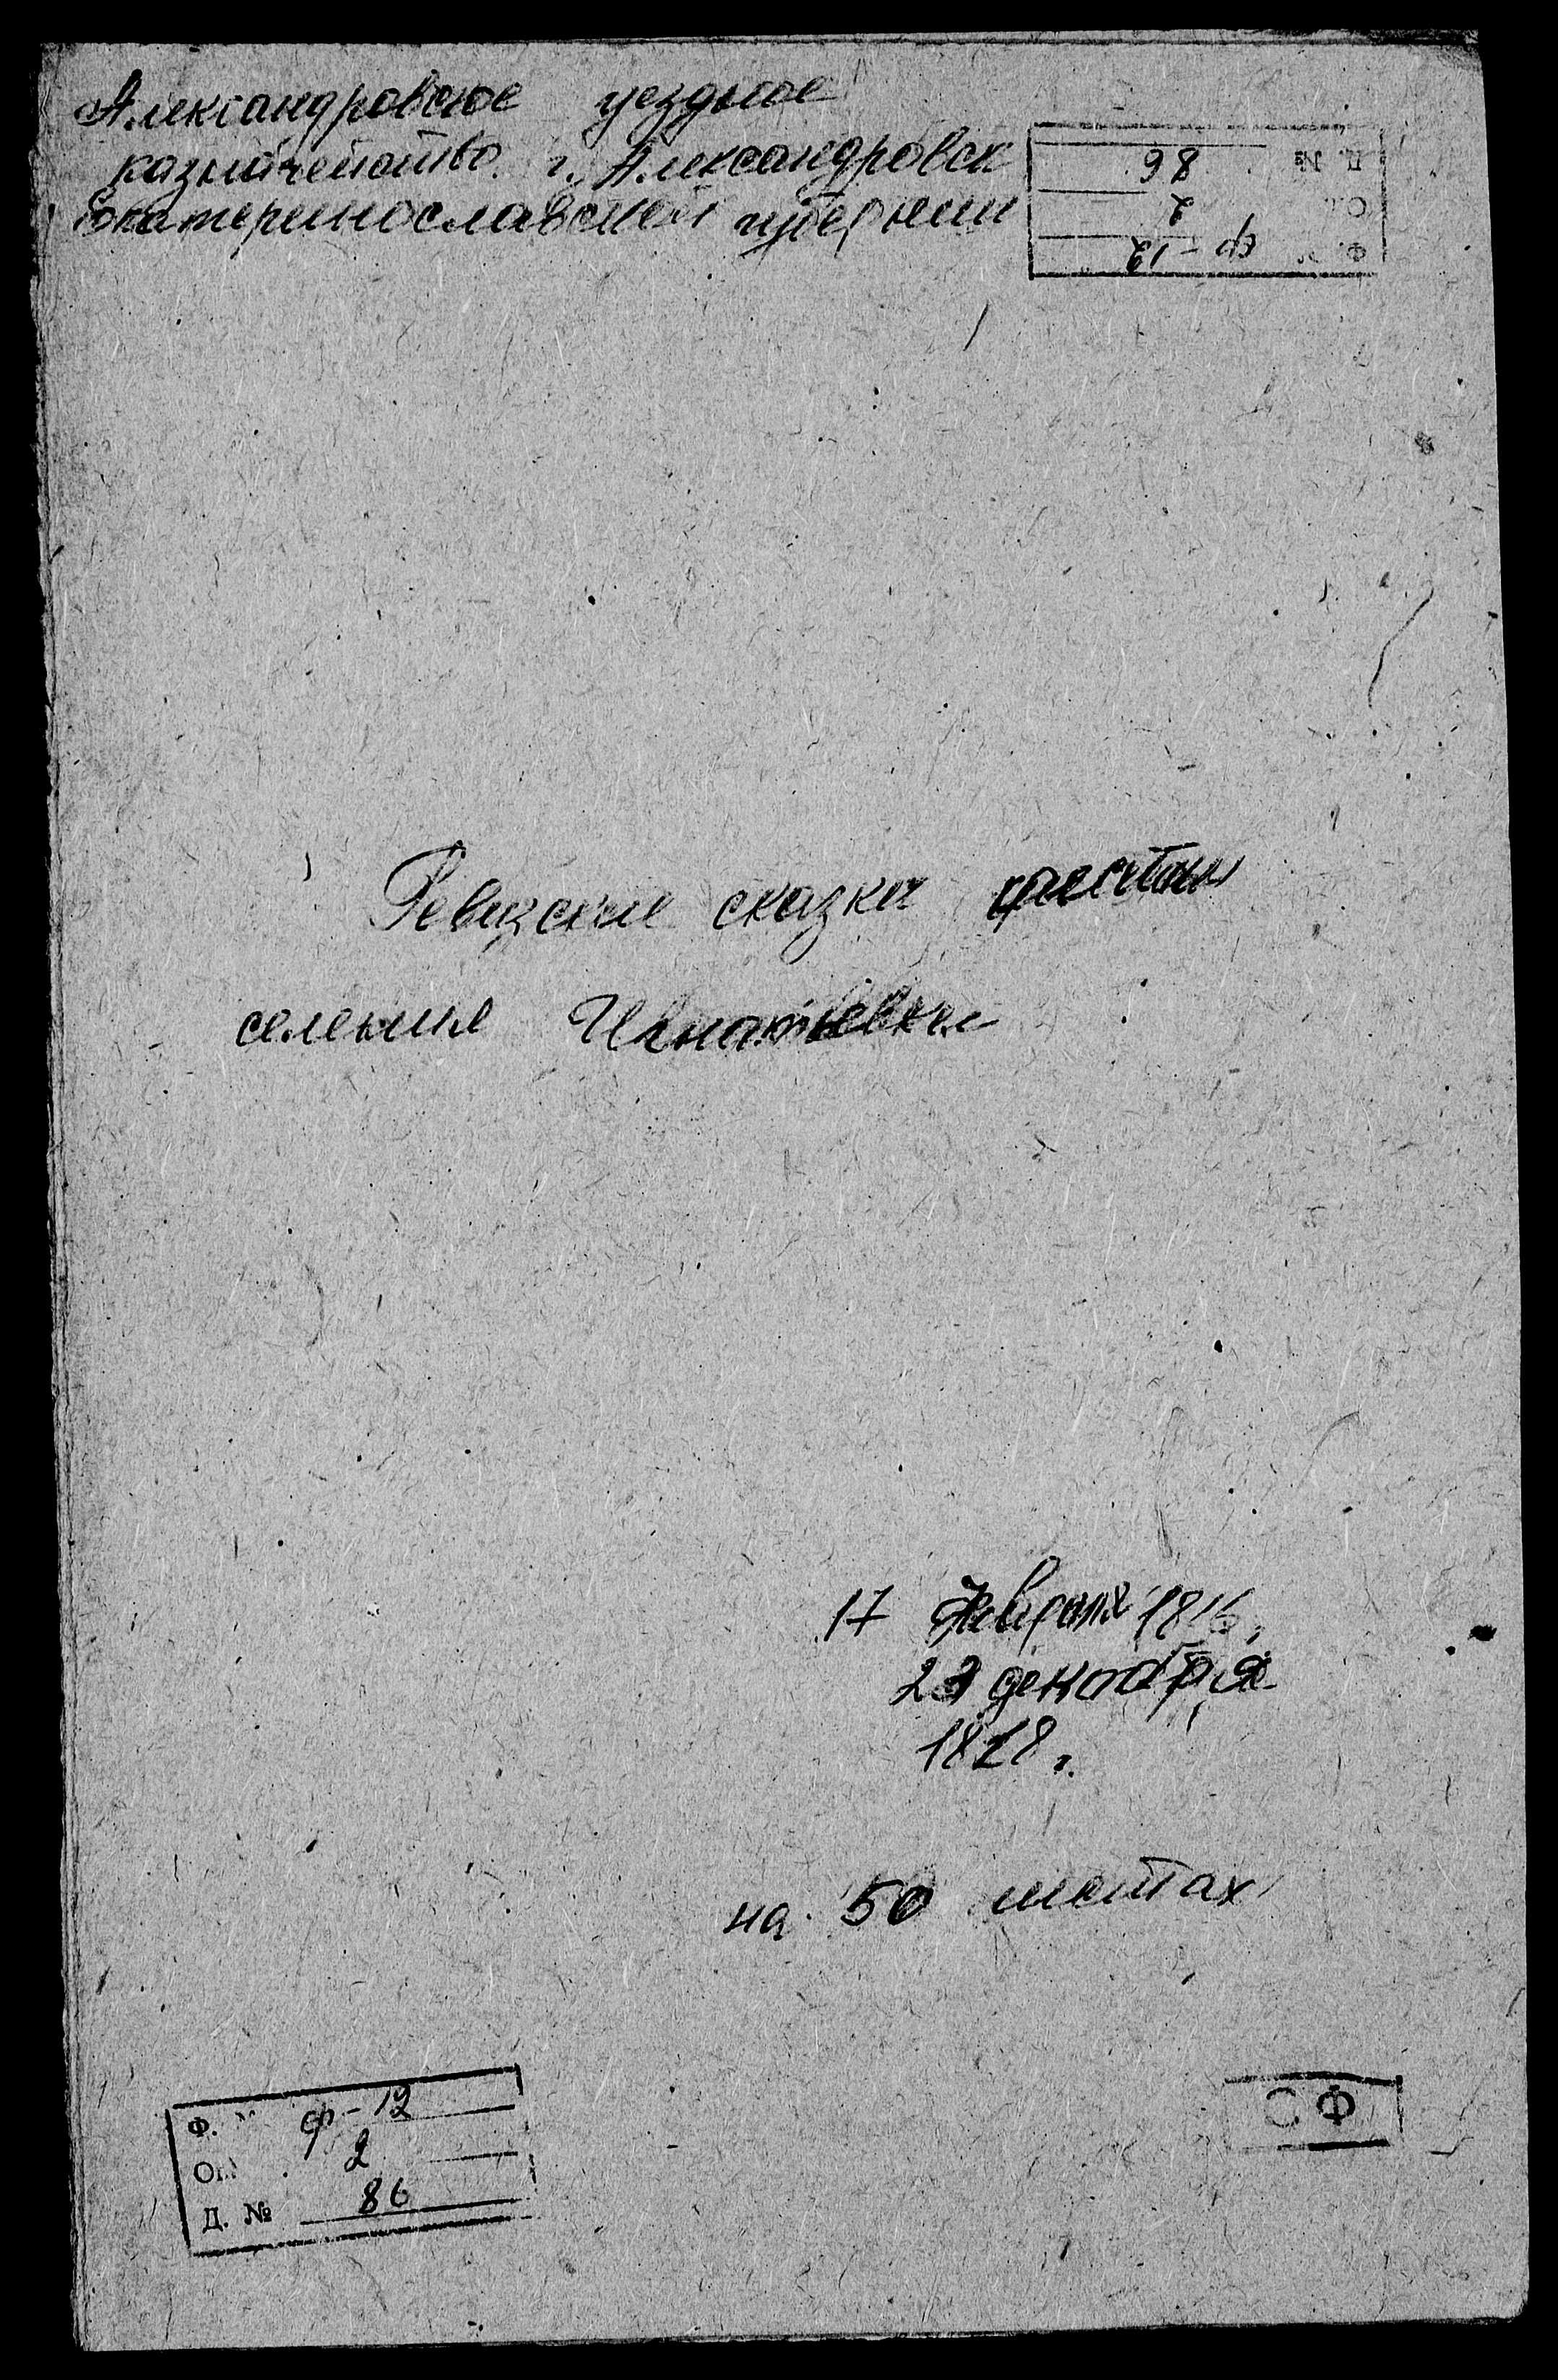 Александровское уездное
казначейство г. Александровск
Екатеринославской губернии
Д. № 86
Оп. 2
Ф. № Ф-12
Ревизские сказки
селения Игнатьевки
17 февраля 1816,
23 декабря
1818 г.
на 50 листах
Ф. № Ф-12
Оп. 2
Д. № 86
СФ